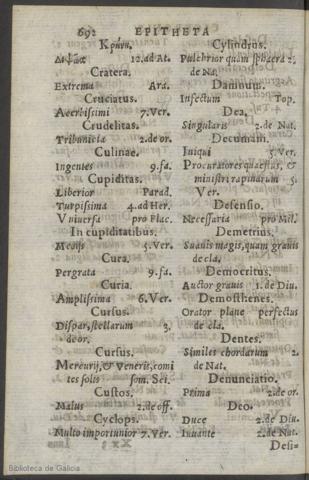 692 EPITHETA
Κρήνη.
Διψῶσα 12. ad At.
Cratera.
Extrema Ara.
Cruciatus.
Acerbissimi 7. Ver.
Crudelitas.
Tribunicia 2. de or.
Culinae.
Ingentes 9. fa.
Cupiditas.
Liberior Parad.
Turpissima 4. ad Her.
Vniuersa pro Flac.
In cupiditatibus.
Medijs 5. Ver.
Cura.
Pergrata 9. fa.
Curia.
Amplissima 6. Ver.
Cursus.
Dispar, stellarum 3.
de or.
Cursus.
Mercurij, & Veneris, comi
tes solis som. Sci.
Custos.
Malus 2. de off.
Cyclops.
Multo importunior 7. Ver.
Cylindrus.
Pulchrior quàm sphaera 2.
de Na.
Damnum.
Infectum Top.
Dea.
Singularis 2. de Nat.
Decumani.
Iniqui 5. Ver.
Procuratores quaestus, &
ministri rapinarum 5.
Ver.
Defensio.
Necessaria pro Mil.
Demetrius.
Suauis magis, quam grauis
de cla.
Democritus.
Auctor grauis 1. de Diu.
Demosthenes.
Orator plane perfectus
de cla.
Dentes.
Similes chordarum 2.
de Nat.
Denunciatio.
Prima 2. de or.
Deo.
Duce 2. de Diu.
Iuuante 2. de Nat.
Desi=
Biblioteca de Galicia